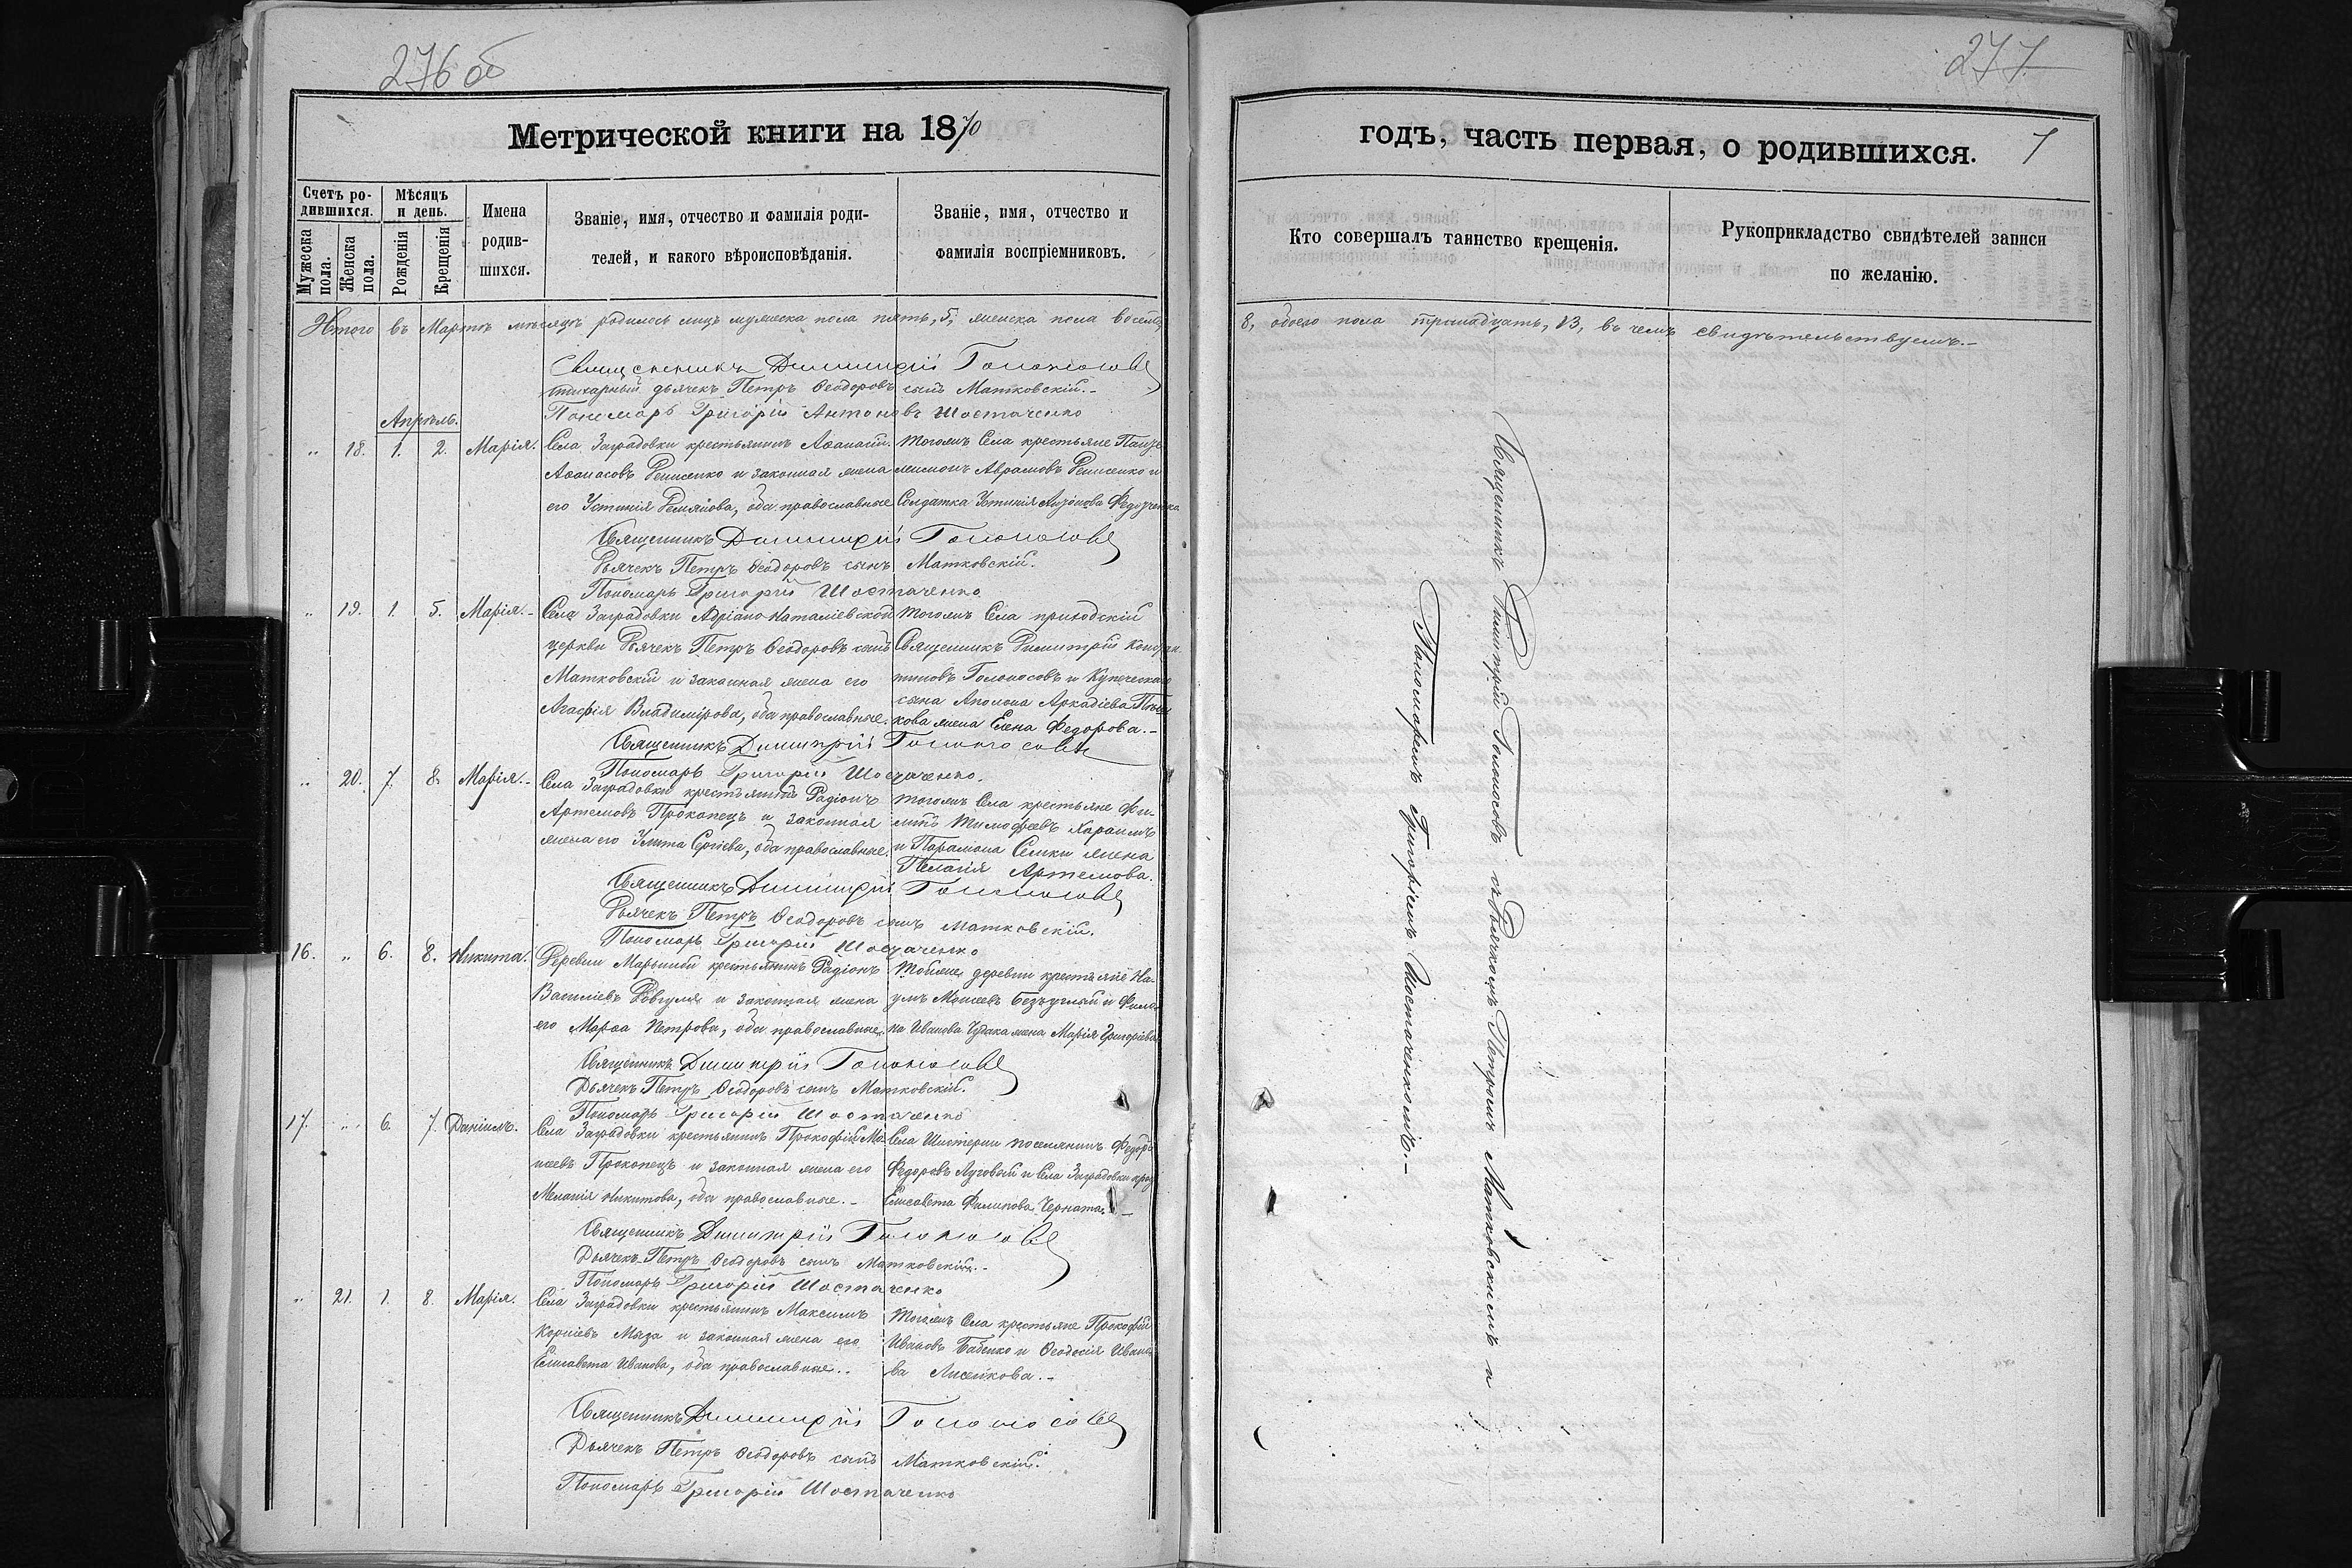 276 об
277
Метрической книги на 1870
годъ, часть первая, о родившихся. 7
Счетъ родившихся.
Мужеска пола.
Женска пола.
Мѣсяцъ и день.
Рожденія
Крещенія
Имена родившихся.
Званіе, имя, отчество и фамилія родителей, и какого вѣроисповѣданія.
Званіе, имя, отчество и фамилія воспріемниковъ.
Кто совершалъ таинство крещенія.
Рукоприкладство свидѣтелей записи по желанію.
Итого въ Мартѣ мѣсяцѣ родилось лицъ мужеска пола пять, 5, женска пола восемь,
8, обоего пола тринадцать, 13, въ чемъ свидѣтельствуемъ.-
Священникъ Димитрій Голоносовъ
Стихарный дьячекъ Петръ Ѳеодоровъ сынъ Матковскій.-
Пономарь Григорій Антоновъ Шостаченко
Апрѣль.
„ 18. 1. 2. Марія. Села Заградовки крестьянинъ Аѳанасій Тогожъ Села крестьяне
Аѳанасовъ и законная жена Аврамовъ и
его Устинія Демянова, оба православные Солдатка Устинія
Священникъ Димитрій Голоносовъ
Дьячекъ Петръ Ѳеодоровъ сынъ Матковскій.
Пономарь Григорій Шостаченко
„ 19. 1. 5. Марія.- Села Заградовки Адріано-Наталіевской Тогожъ Села приходскій
церкви Дьячекъ Петръ Ѳеодоровъ сынъ Священникъ Димитрій
Матковскій и законная жена его Голоносовъ и Купеческаго
сына Аполона Аркадіева
Агафія Владимірова, оба православные. жена Елена Федорова.-
Священникъ Димитрій Голоносовъ
Пономарь Григорій Шостаченко.
„ 20. 7. 8. Марія.- Села Заградовки крестьянинъ Радіонъ Тогожъ Села крестьяне Фи-
Артемовъ Прокопецъ и законная липъ Тимофеевъ
жена его Улита Сергіева, оба православные. и Парамона жена
Пелагія Артемова.
Священникъ Димитрій Голоносовъ
Дьячекъ Петръ Ѳеодоровъ сынъ Матковскій.
Пономарь Григорій Шостаченко
16. „ 6. 8. Никита. Деревни крестьянинъ Радіонъ Тойжѣ деревни крестьяне На-
Василіевъ Довгуля и законная жена умъ Моисеевъ Безъуглый и
его Марѳа Петрова, оба православные. Иванова жена Марія Григоріева
Священникъ Димитрій Голоносовъ
Дьячекъ Петръ Ѳеодоровъ сынъ Матковскій.
Пономарь Григорій Шостаченко
17. „ 6. 7. Даніилъ. Села Заградовки крестьянинъ Прокофій Мо- Села поселянинъ Федоръ
исеевъ Прокопецъ и законная жена его Федоровъ Луговый и Села Заградовки
Меланія Никитова, оба православные.- Елисавета Филипова
Священникъ Димитрій Голоносовъ
Дьячекъ Петръ Ѳеодоровъ сынъ Матковскій.-
Пономарь Григорій Шостаченко
„ 21. 1. 8. Марія. Села Заградовки крестьянинъ Максимъ Тогожъ Села крестьяне Прокофій
Корніевъ Мяза и законная жена его Ивановъ Бабенко и Ѳеодосія Ивано-
Елисавета Иванова, оба православные.. ва Лисейкова.-
Священникъ Димитрій Голоносовъ
Дьячекъ Петръ Ѳеодоровъ сынъ Матковскій.
Пономарь Григорій Шостаченко
Священникъ Димитрій Голоносовъ съ Дьячкомъ Петромъ Матковскимъ и
Пономаремъ Григоріемъ Шостаченкомъ.-